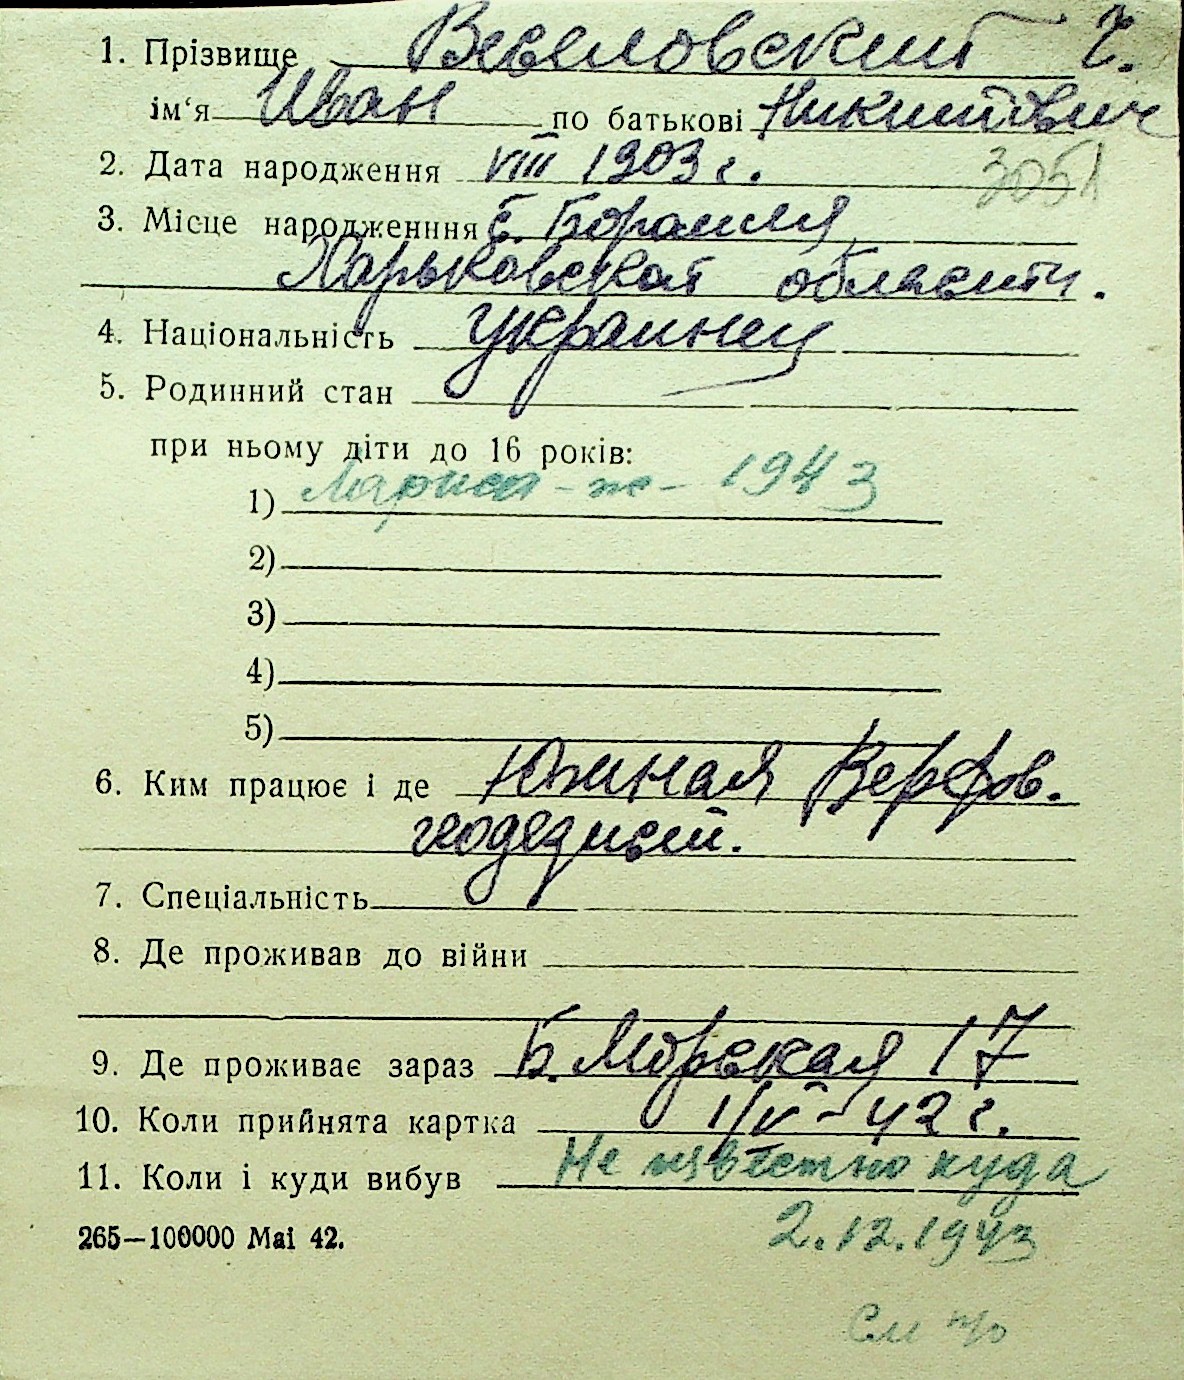 1. Прізвище Веселовский Ч.
ім‘я Иван по батькові Никитович
2. Дата народження VIII 1903 г.
3051
3. Місце народженння с. Боромля
Харьковской области.
4. Національність украинец
5. Родинний стан
при ньому діти до 16 років:
1) Лариса - ж - 1943
2)
3)
4)
5)
6. Ким працює і де Южная Верфь.
геодезист.
7. Спеціальність
8. Де проживав до війни
9. Де проживає зараз Б. Морская 17
10. Коли прийнята картка 1/V - 42 г.
11. Коли і куди вибув Не известно куда
2.12.1943
265—100000 Mai 42.
См